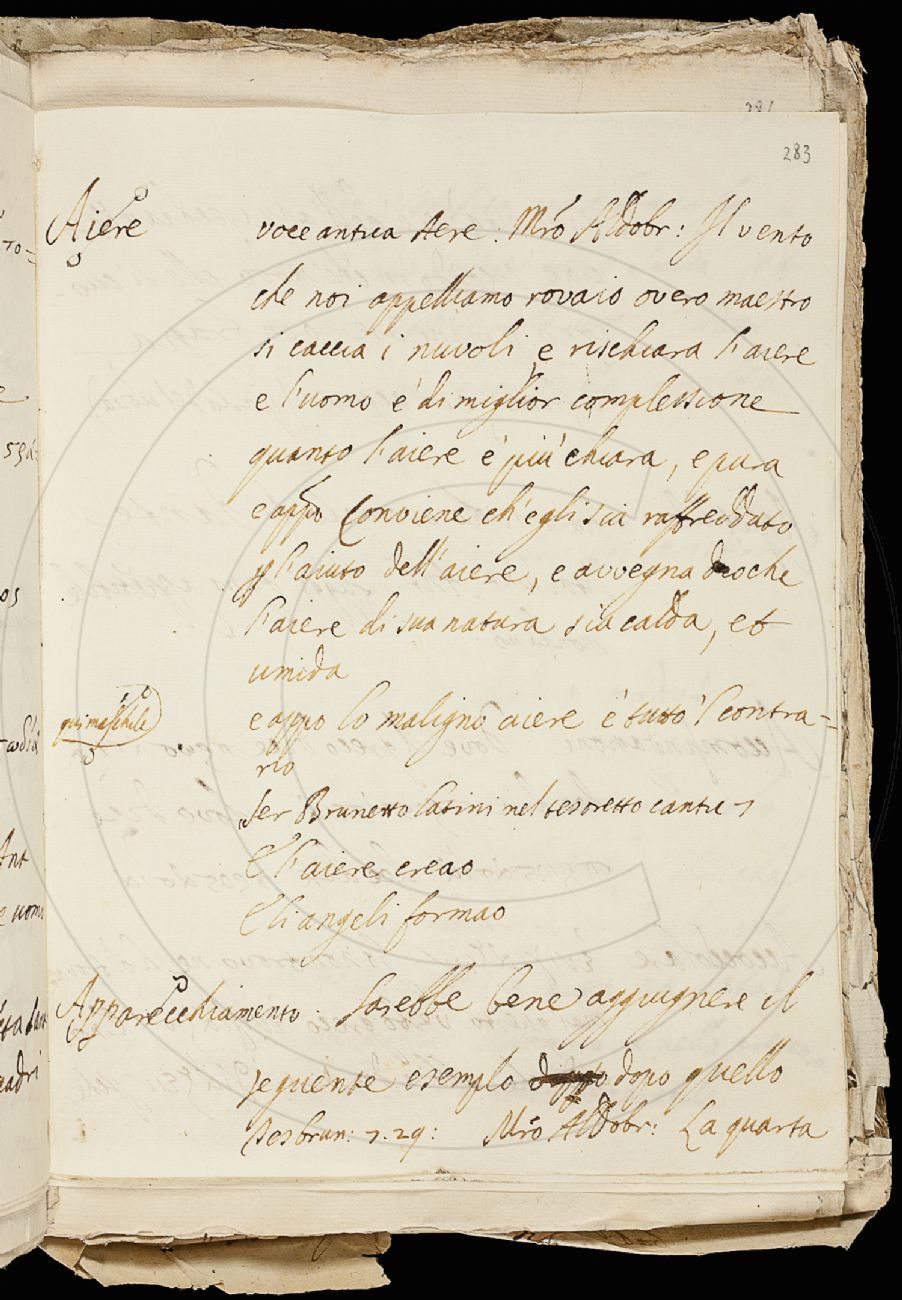 283
Aiere voce antica Aere. Mrõ Aldobr: Il vento
che noi appelliamo rovaio overo maestro
si caccia i nuvoli e rischiara l'aiere
e l'uomo è di miglior complessione
quanto l'aiere è più chiara, e pura
e appo Conviene ch'egli sia raffreddato
p l'aiuto dell'aiere, e avvegna dioche
l'aiere di sua natura sia calda, et
umida
qui maschile e appo lo maligno aiere è tutto 'l contra=
rio
Ser Brunetto latini nel tesoretto cantu 7
E l'aiere creao
E li angeli formao
Apparecchiamento. Sarebbe bene aggiugnere il
seguente esemplo dopo quello
Tesbrun: 7. 29: Mrõ Aldobr: La quarta